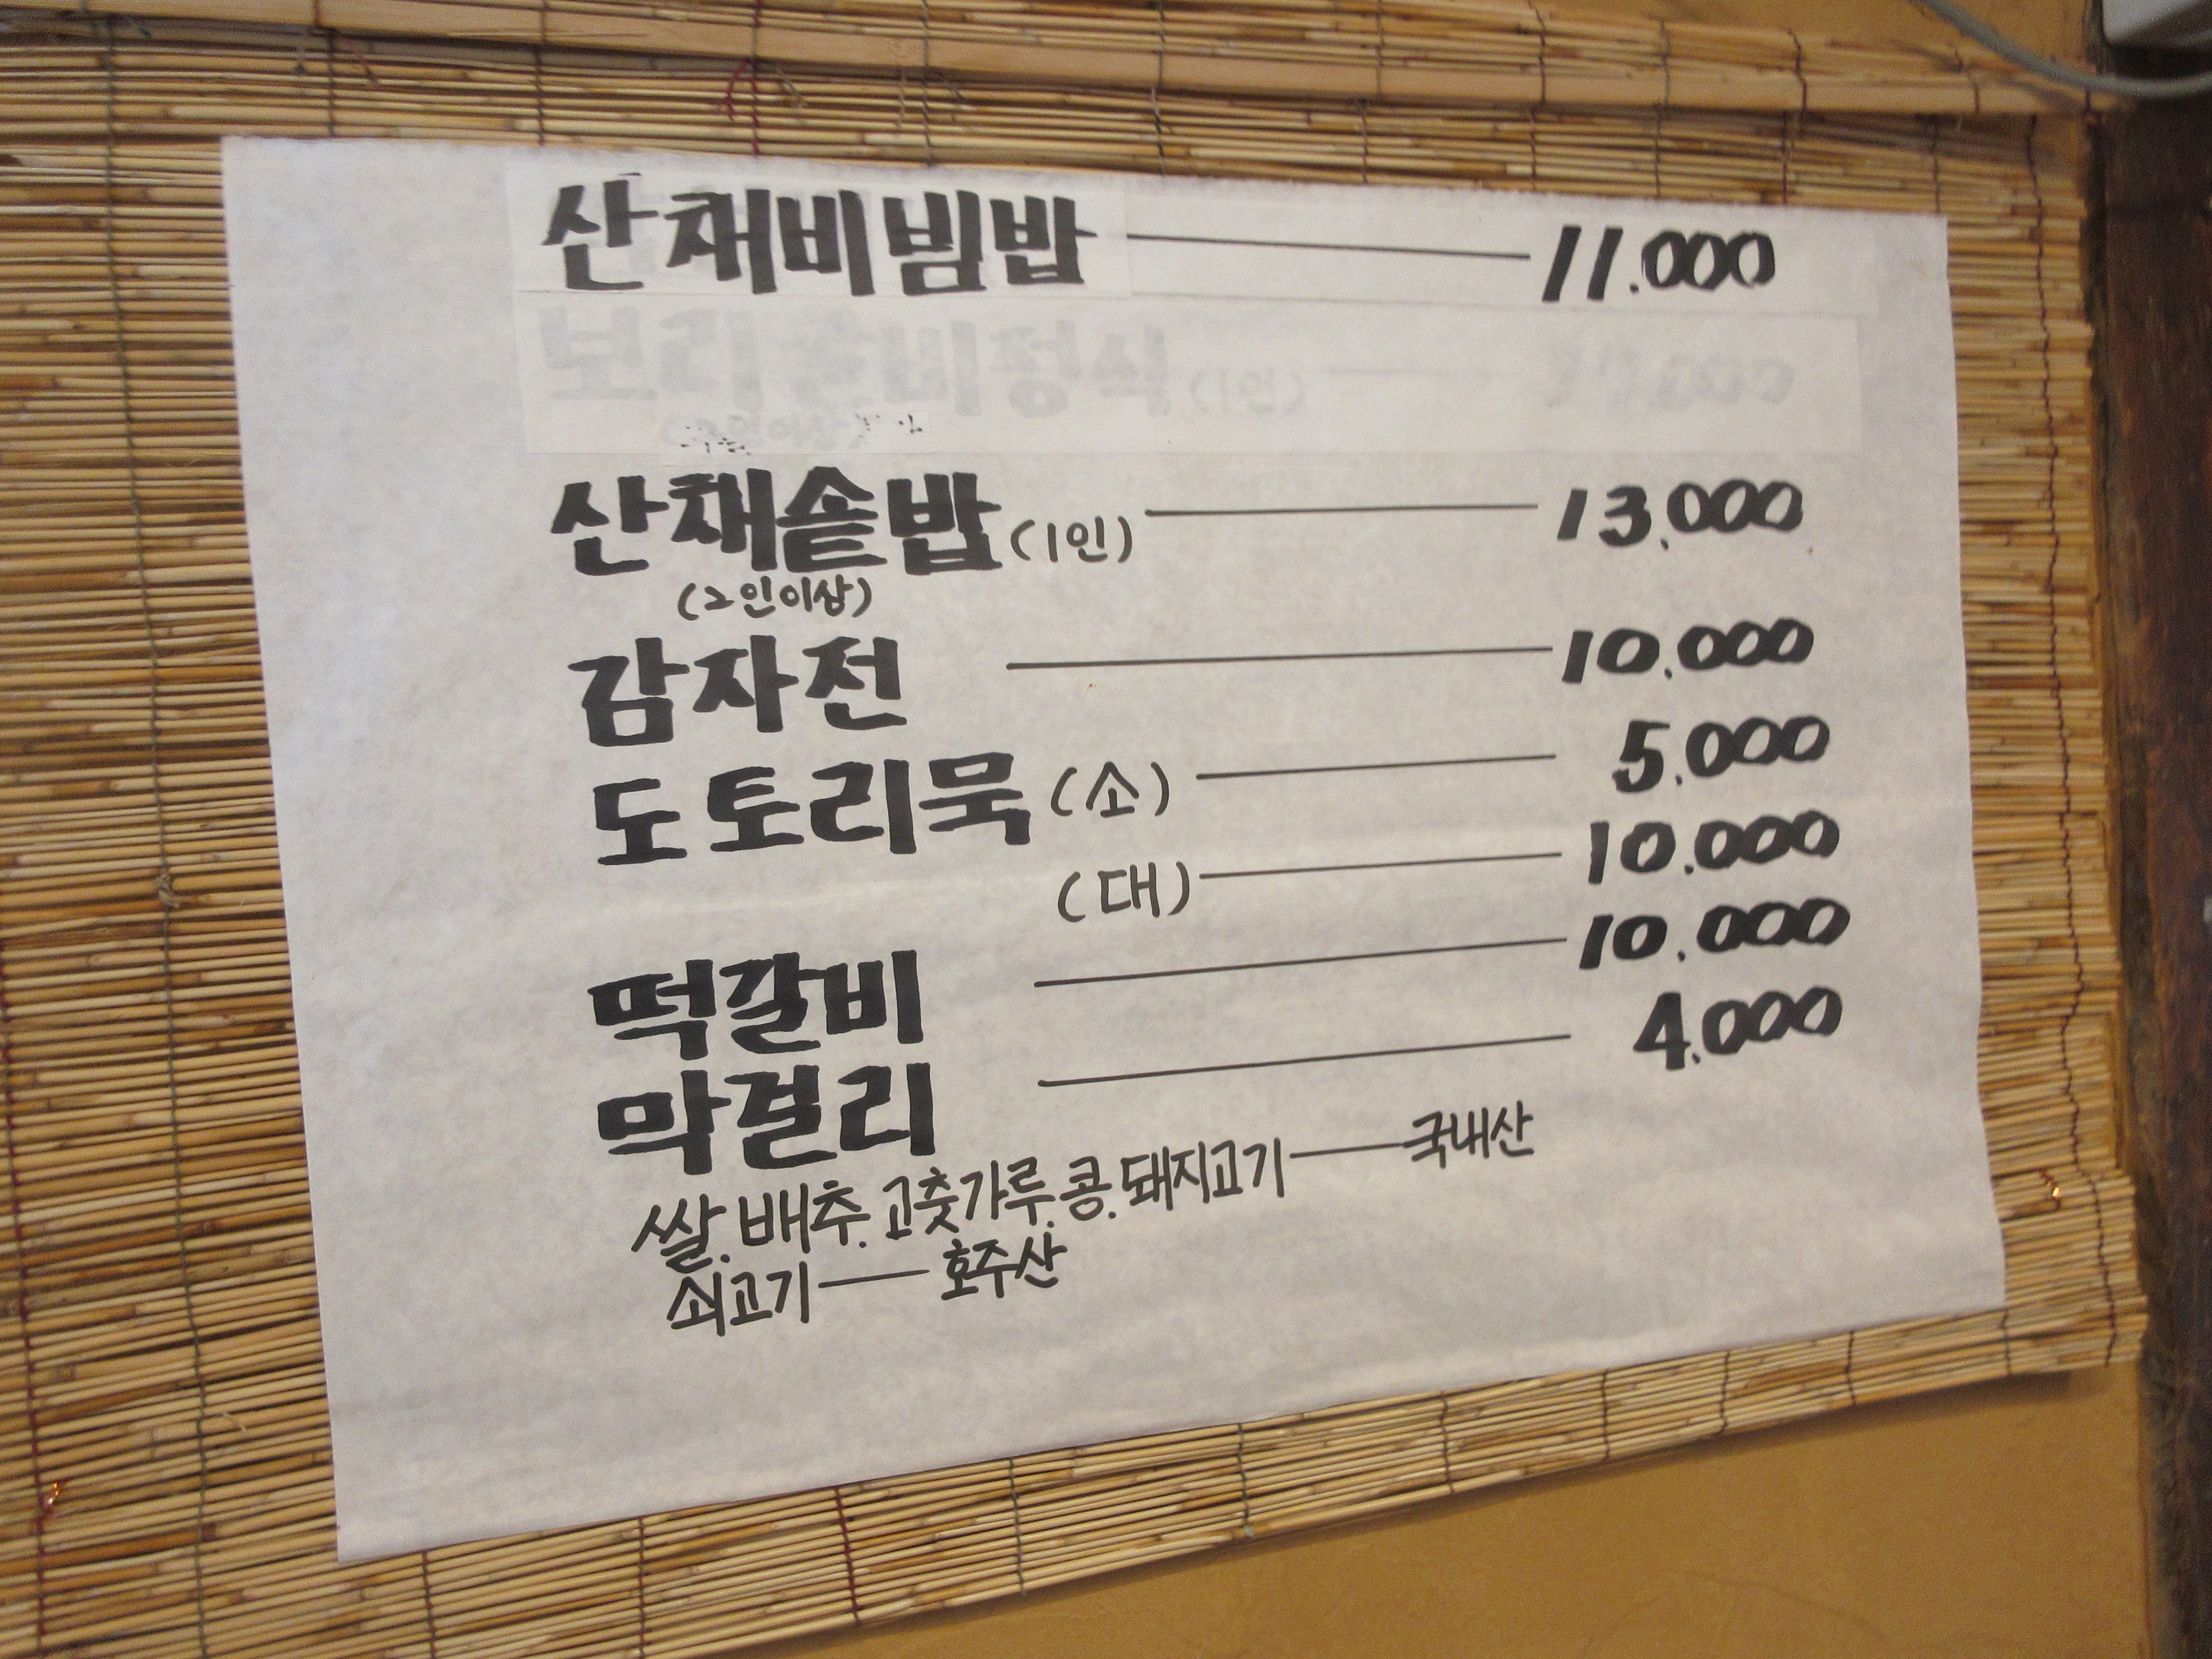 산채비빔밥 11.000
보리굴비정식 (1인)
산채솥밥 (1인) 13.000
(2인이상)
감자전 10.000
도토리묵 (소) 5.000
(대) 10.000
떡갈비 10.000
막걸리 4.000
쌀. 배추. 고춧가루. 콩. 돼지고기 국내산
쇠고기 호주산